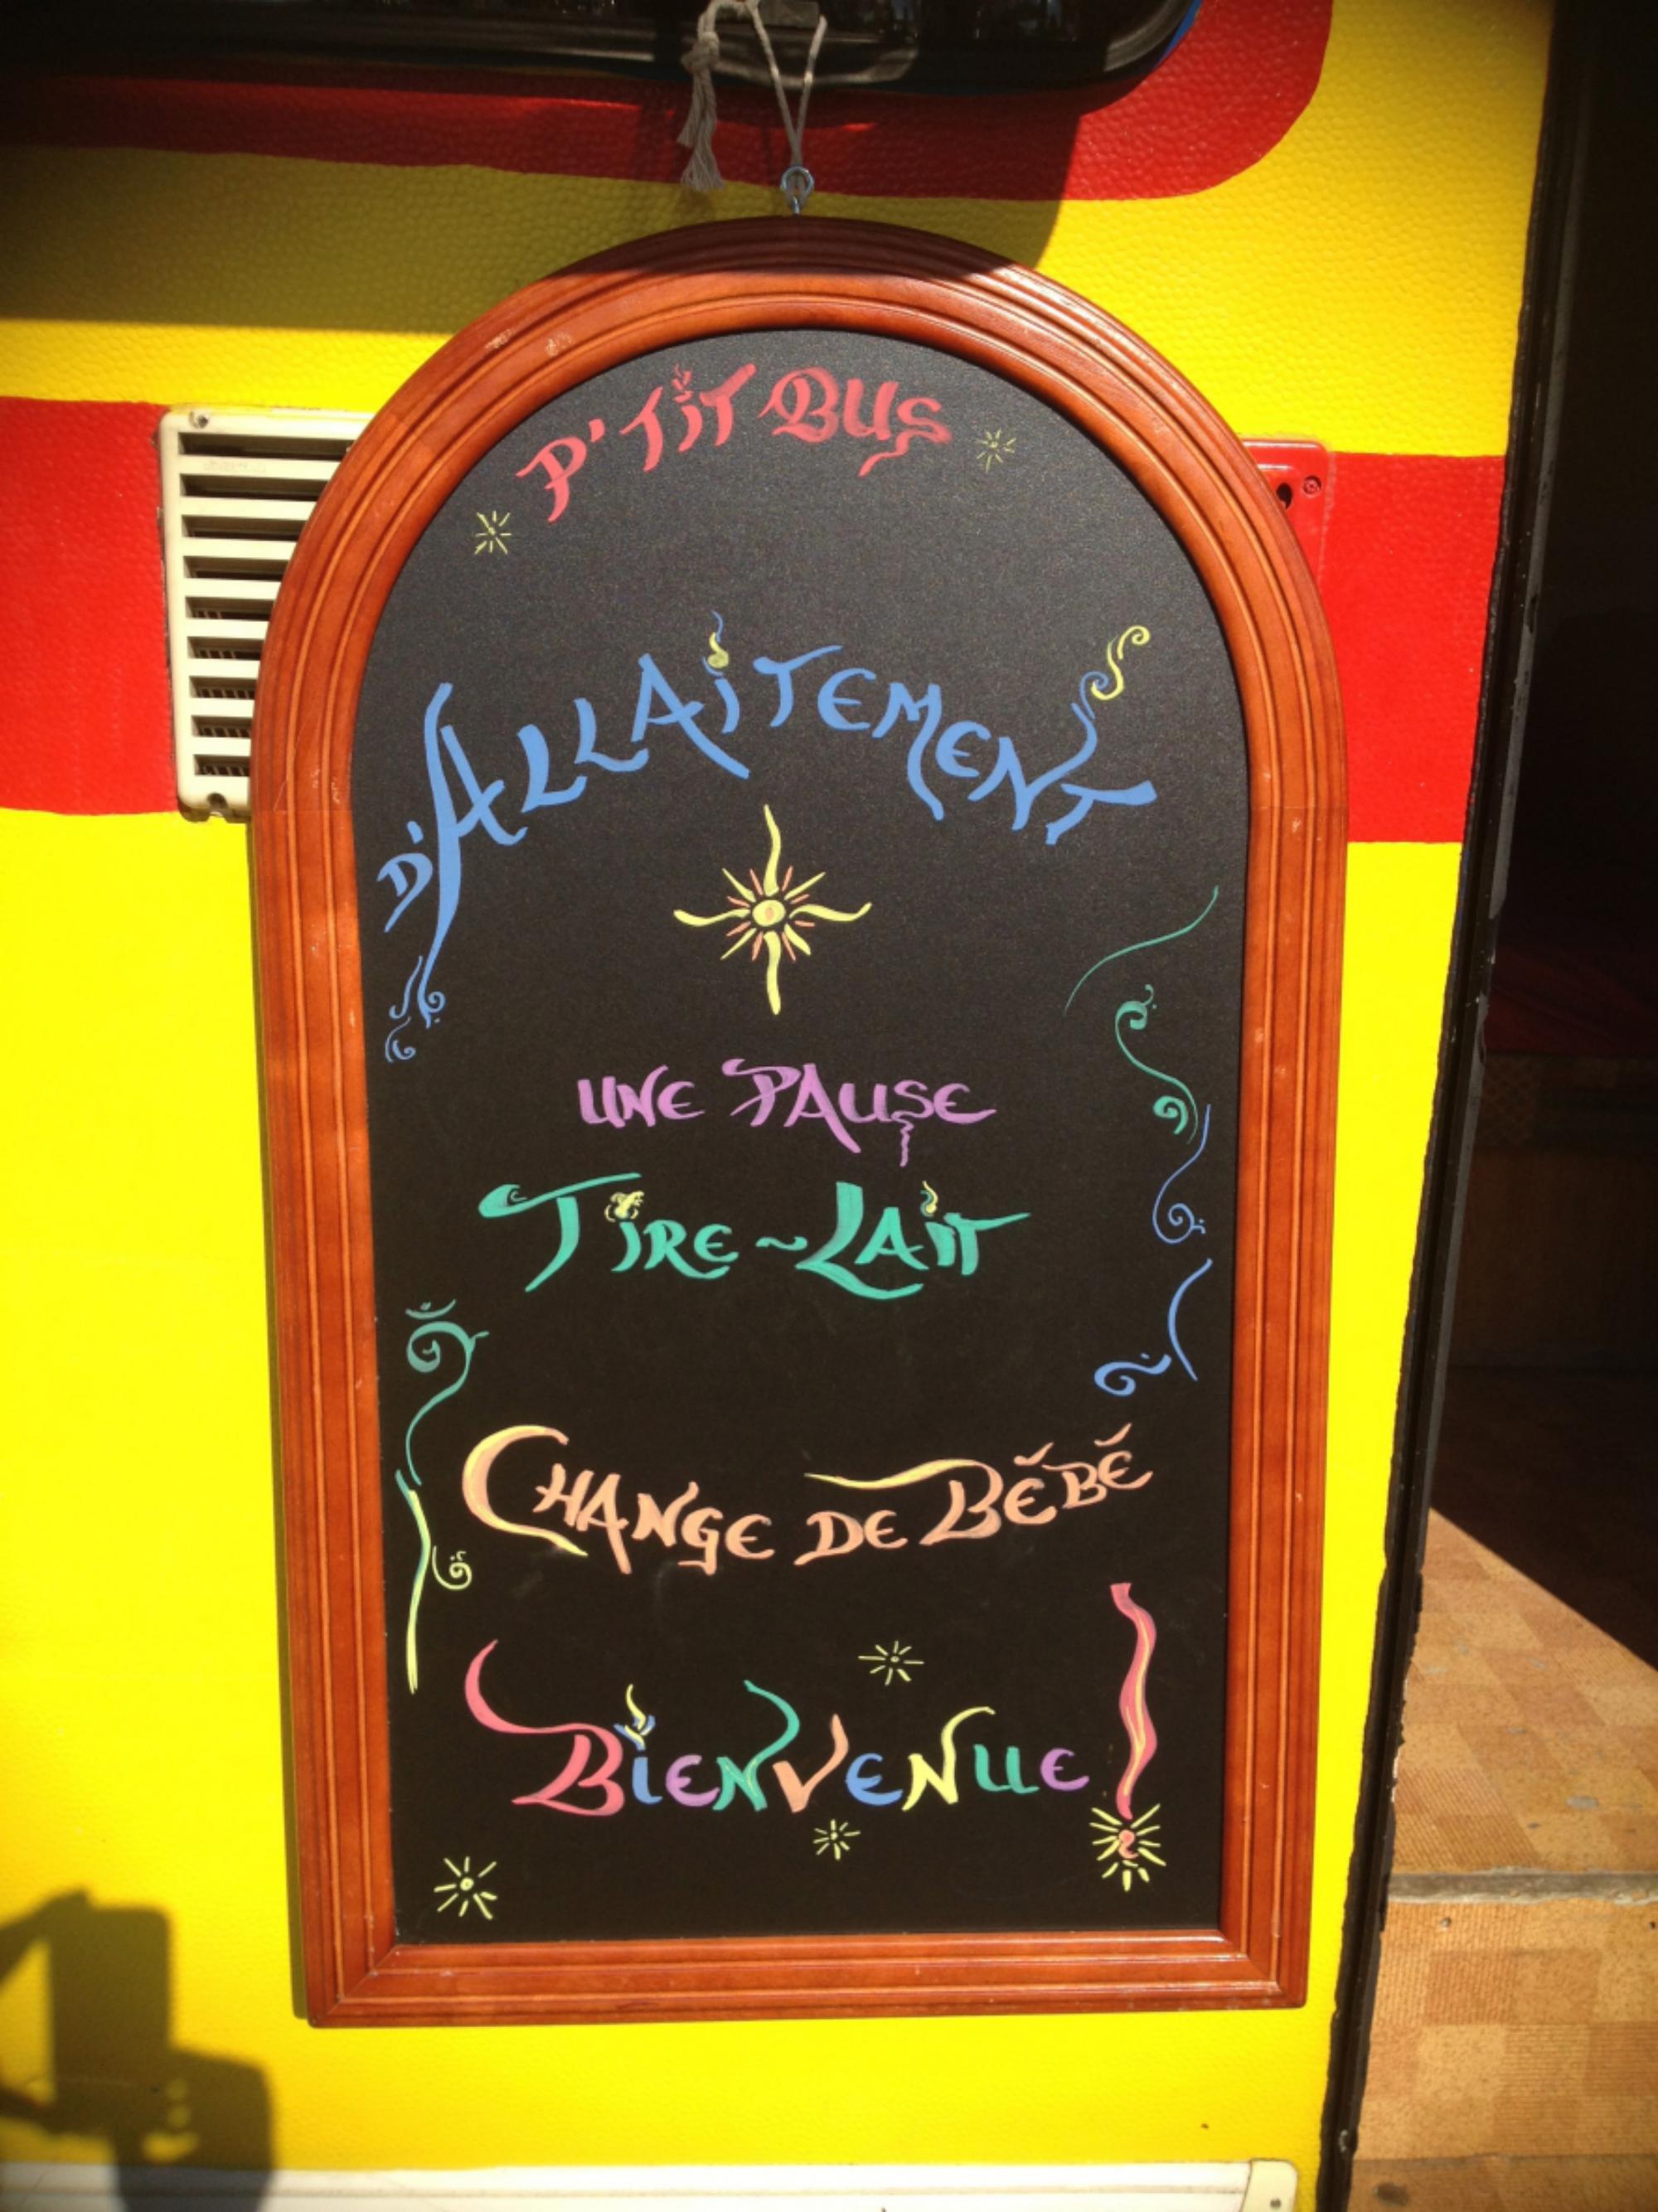 P'TiT BUS
D'ALLAiTEMENT
UNE PAUSE
TiRE~LAiT
CHANGE DE BÉBÉ
BiENVENUE !